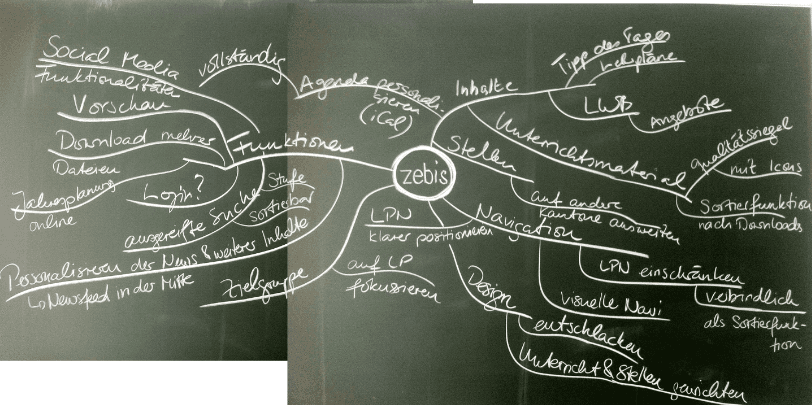 zebis
Social Media
Funktionalitäten
vollständig
Agenda personali-
sieren
(iCal)
Vorschau
Download mehrer
Dateien
Jahresplanung
online
Login?
Funktionen
ausgereifte Suche
Stufe
Sortierbar
Personalisieren der News & weiterer Inhalte
↳ Newsfeed in der Mitte
Zielgruppe
auf LP
fokussieren
LPN
klarer positionieren
Inhalte
Tipp des Tages
Lehrpläne
LWB
Angebote
Unterrichtsmaterial
Qualitätssiegel
mit Icons
Sortierfunktion
nach Downloads
Stellen
auf andere
Kantone ausweiten
Navigation
LPN einschränken
verbindlich
als Sortierfunk-
tion
visuelle Navi
Design
entschlacken
Unterricht & Stellen gewichten